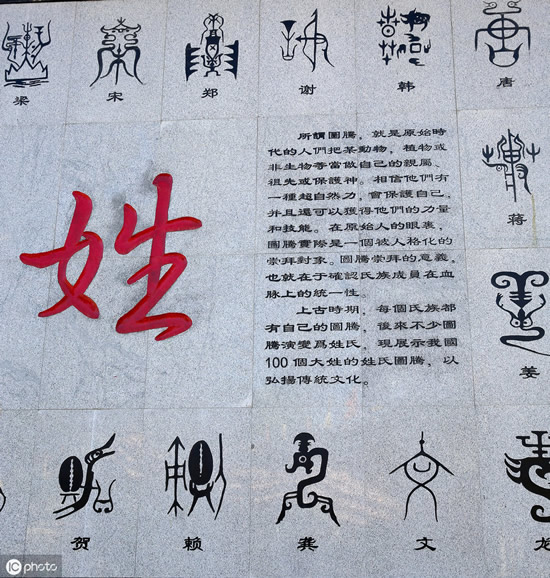 梁 宋 郑 谢 韩 唐
姓
所謂圖騰，就是原始時
代的人們把某動物，植物或
非生物等當做自己的親屬、
祖先或保護神。相信他們有
一種超自然力，會保護自己，
并且還可以獲得他們的力量
和技能。在原始人的眼裏，
圖騰實際是一個被人格化的
崇拜對象。圖騰崇拜的意義，
也就在于確認氏族成員在血
脉上的統一性。
上古時期，每個氏族都
有自己的圖騰，後來不少圖
騰演變爲姓氏，現展示我國
100個大姓的姓氏圖騰，以
弘揚傳統文化。
蒋
姜
贺 赖 龚 文 龙
IC photo